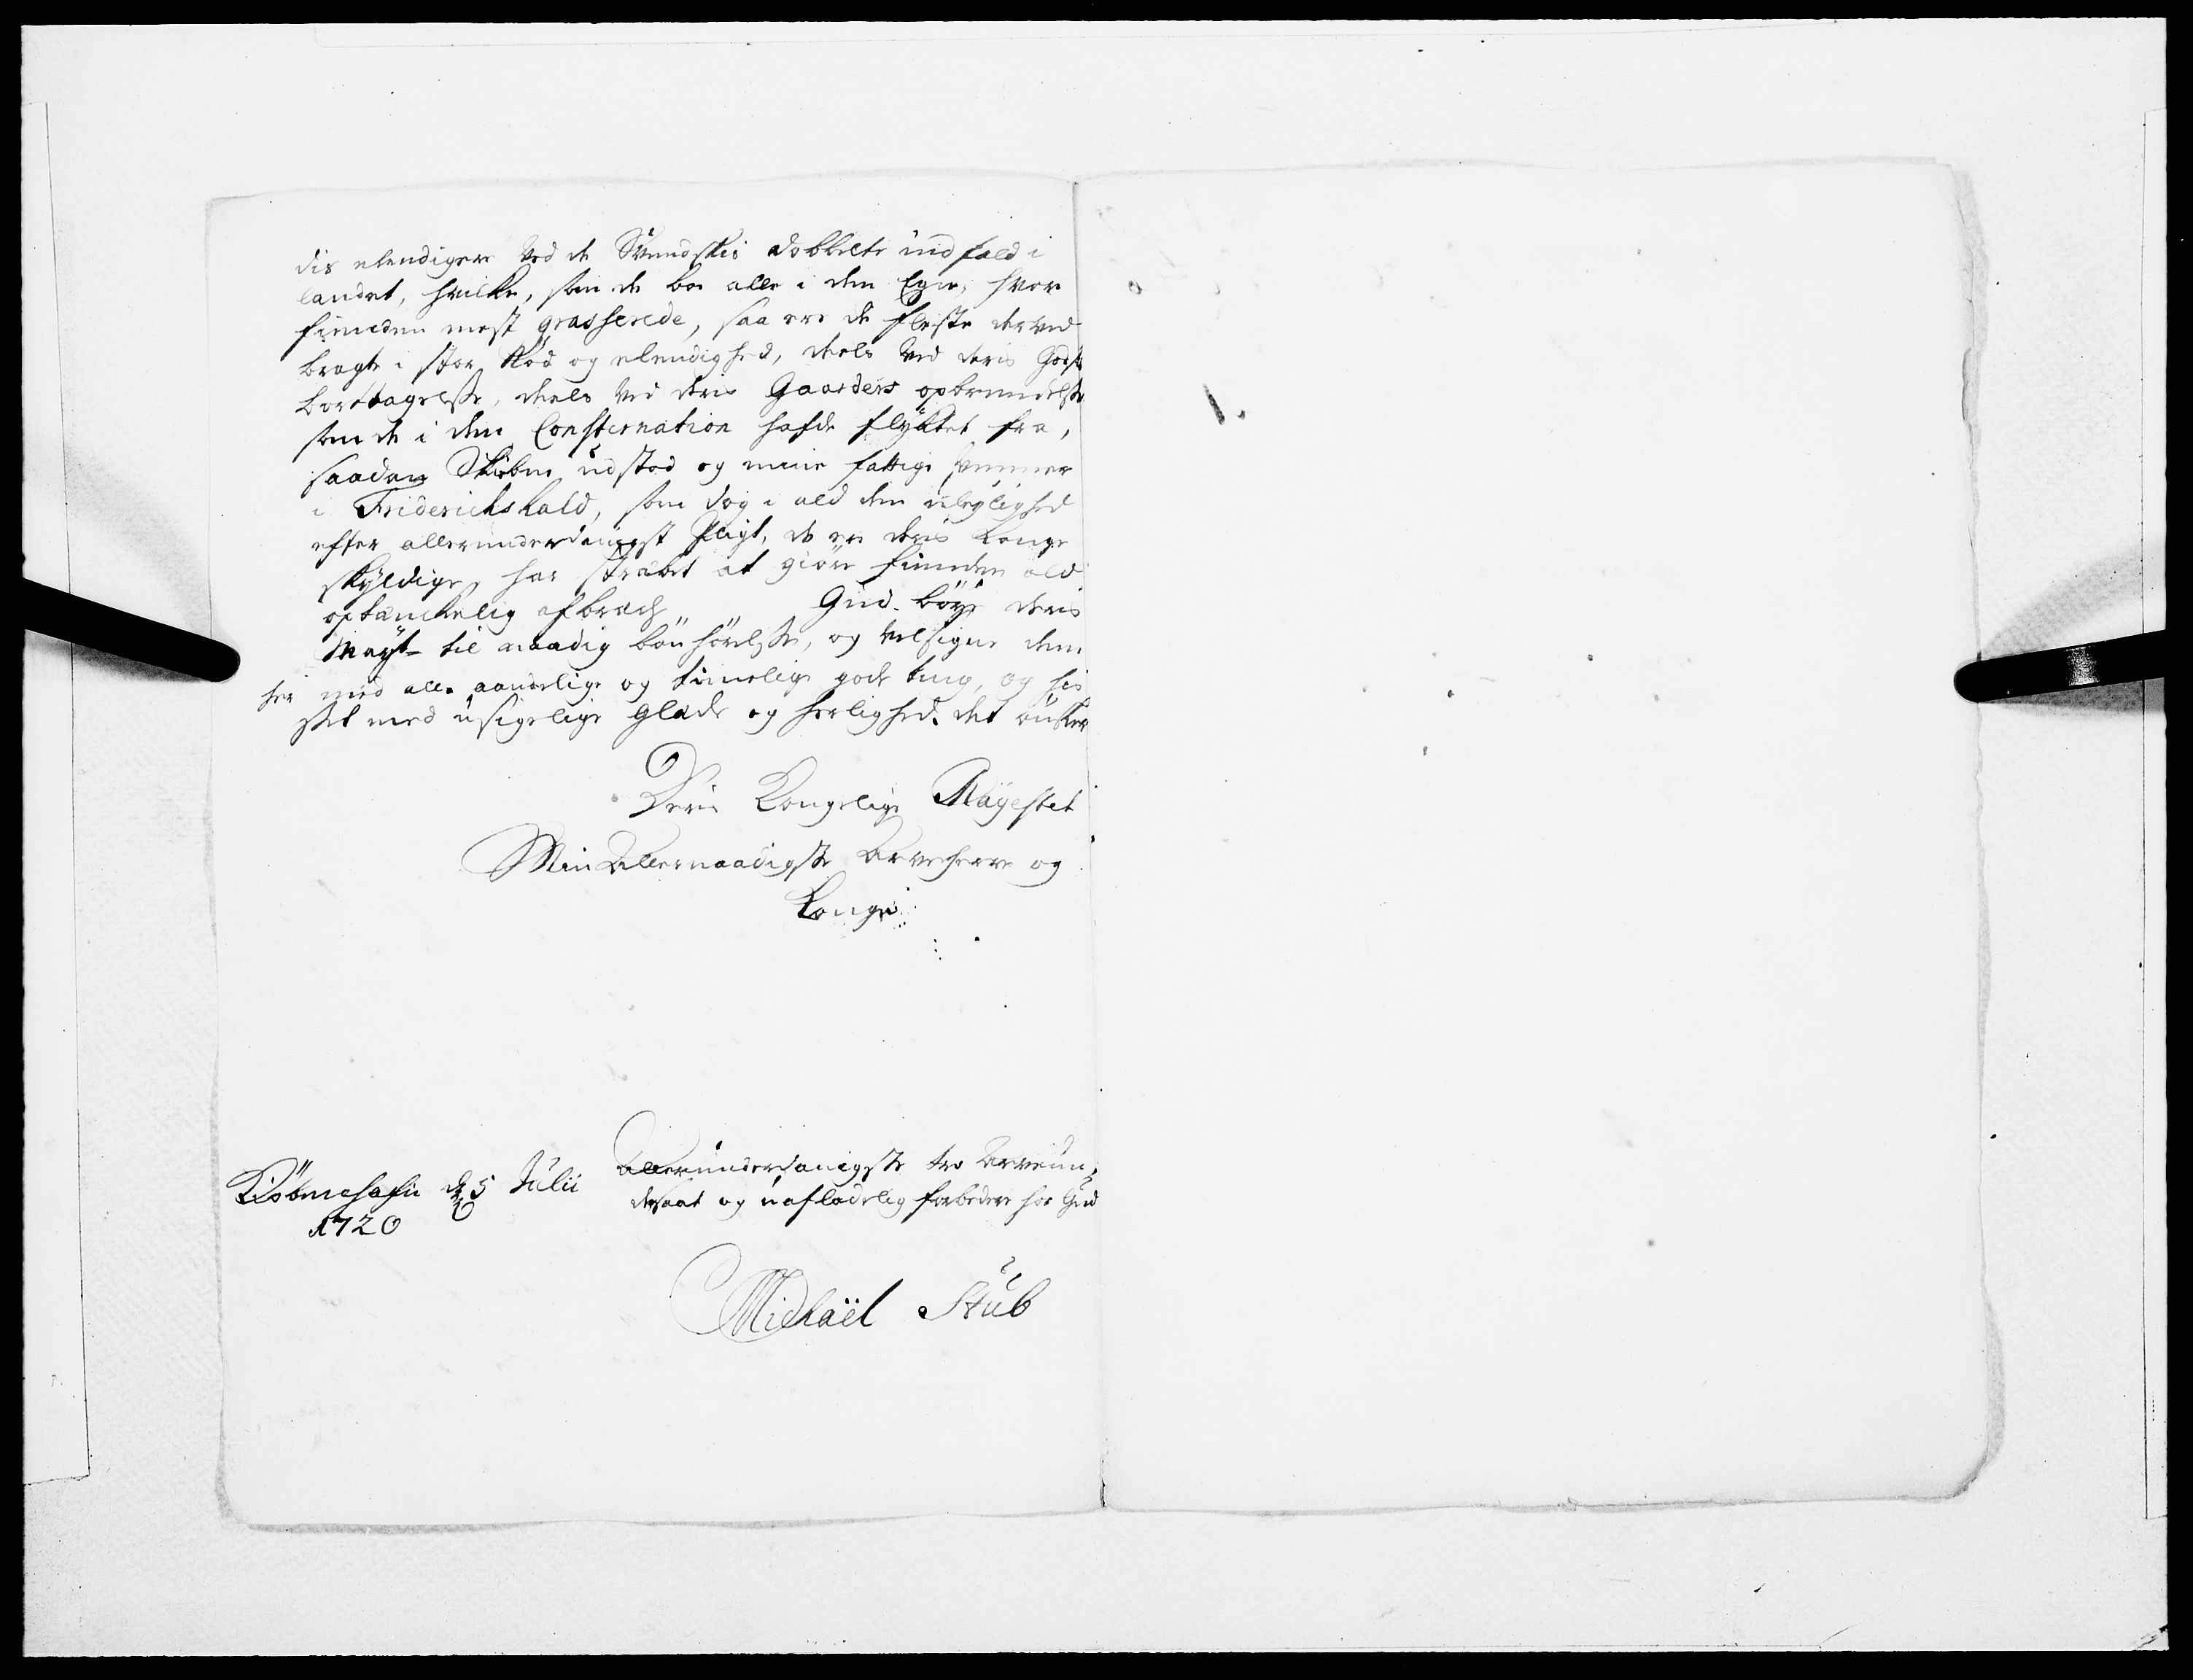 dis elendigere ved de Svendskis dobbelte indfald i
landet, hvilke, som de boe alle i den Egn, hvor
fienden mest grasserede, saa ere de fleste derved
bragte i stor Nød og elendighed, deels ved deris Godses
borttagelse, deels ved deris Gaarders opbrendelse
som de i den Consternation hafde flyktet fra,
saadan Skiebne udstod og mine fattige venner
i Friderichshald, som dog i ald den uleylighed
efter allerunderdanigst Pligt, de ere deris Konge
skyldige, har stræbt at giøre fienden ald
optænchelig afbrech. Gud bøye deris
Mayt til naadig bønhørelse, og velsigne dem
her med alle aandelige og timelige gode ting, og his
set med usigelige Glæde og herlighed. det ønsker
Deris Kongelige Mayestet
Min Allernaadigste Arveherre og
Konge
Kiøbenehafn d. 5 Julii
1720
Allerunderdanigste tro Arveun,
dersaat og uafladelig forbedere hos Gud
Michaël Stub